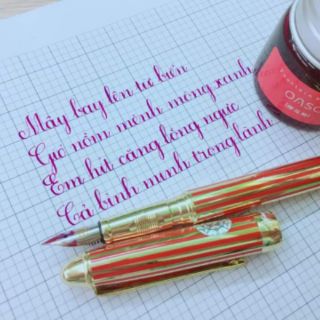 Mây bay lên từ biển
Gió nồm mênh mông xanh
Em hít căng lồng ngực
Cả bình minh trong lành